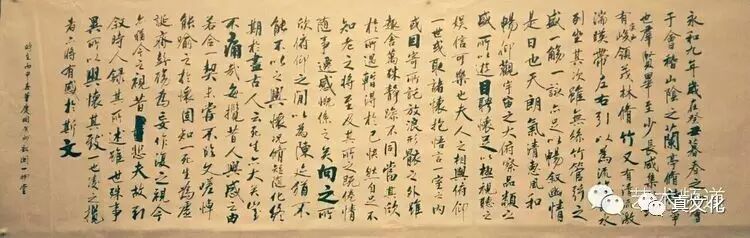 永和九年歲在癸丑暮春之初會
于會稽山陰之蘭亭脩禊事
也羣賢畢至少長咸集此地
有崇山峻領茂林脩竹又有清流激
湍暎帶左右引以為流觴曲水
列坐其次雖無絲竹管弦之
盛一觴一詠亦足以暢敘幽情
是日也天朗氣清惠風和
暢仰觀宇宙之大俯察品類之
盛所以遊目騁懷足以極視聽之
娛信可樂也夫人之相與俯仰
一世或取諸懷抱悟言一室之內
或因寄所託放浪形骸之外雖
趣舍萬殊靜躁不同當其欣
於所遇蹔得於己快然自足不
知老之將至及其所之既惓情
隨事遷感慨係之矣向之所
欣俛仰之閒以為陳迹猶不
能不以之興懷況脩短隨化終
期於盡古人云死生亦大矣豈
不痛哉每攬昔人興感之由
若合一契未嘗不臨文嗟悼不
能喻之於懷固知一死生為虛
誕齊彭殤為妄作後之視今
亦由今之視昔悲夫故列
敘時人錄其所述雖世殊事
異所以興懷其致一也後之攬
者亦將有感於斯文
時在丙申春
真文化